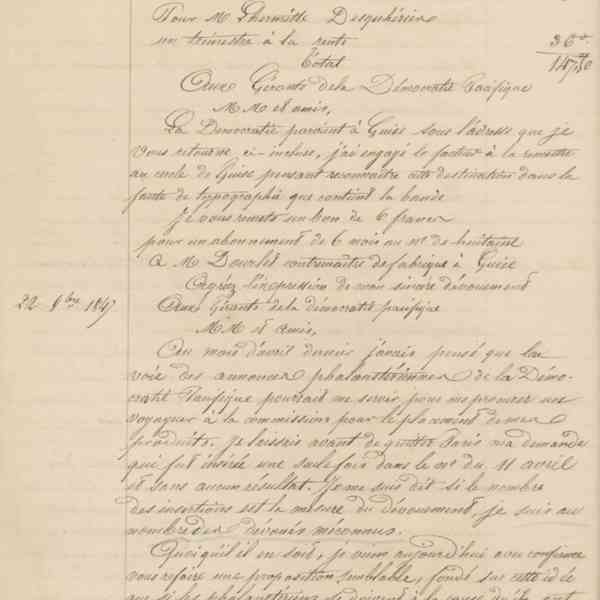 Pour M Lhermitte Desquhérine
un trimestre à la rente 36 "
Total 147,50
Aux Gérants de la Démocratie Pacifique
M M et amis,
La Démocratie parvient à Guise sous l'adresse que je
vous retourne ci-incluse, j'ai engagé le facteur à la remettre
au cercle de Guise pensant reconnaître cette destination dans la
faute de typographie que contient la bande
Je vous remets un bon de 6 francs
pour un abonnement de 6 mois au n° de huitaine
à M Dourlet contremaître de fabrique à Guise
Agréez l'expression de mon sincère dévouement
22 8bre 1847 Aux Gérants de la démocratie pacifique
M M et Amis,
Au mois d'avril dernier j'avais pensé que la
voie des annonces phalanstériennes de la Démo-
cratie Pacifique pourrait me servir pour me procurer un
voyageur à la commission pour le placement de mes
produits. Je laissais avant de quitter Paris ma demande
qui fut insérée une seule fois dans le n° du 11 avril
et sans aucun résultat. Je me suis dit si le nombre
des insertions est la mesure du dévouement, je suis au
nombre des dévoués méconnus.
Quoiqu'il en soit, je viens aujourd'hui avec confiance
vous refaire une proposition semblable, fondé sur cette idée
que si les phalanstériens se doivent à la cause